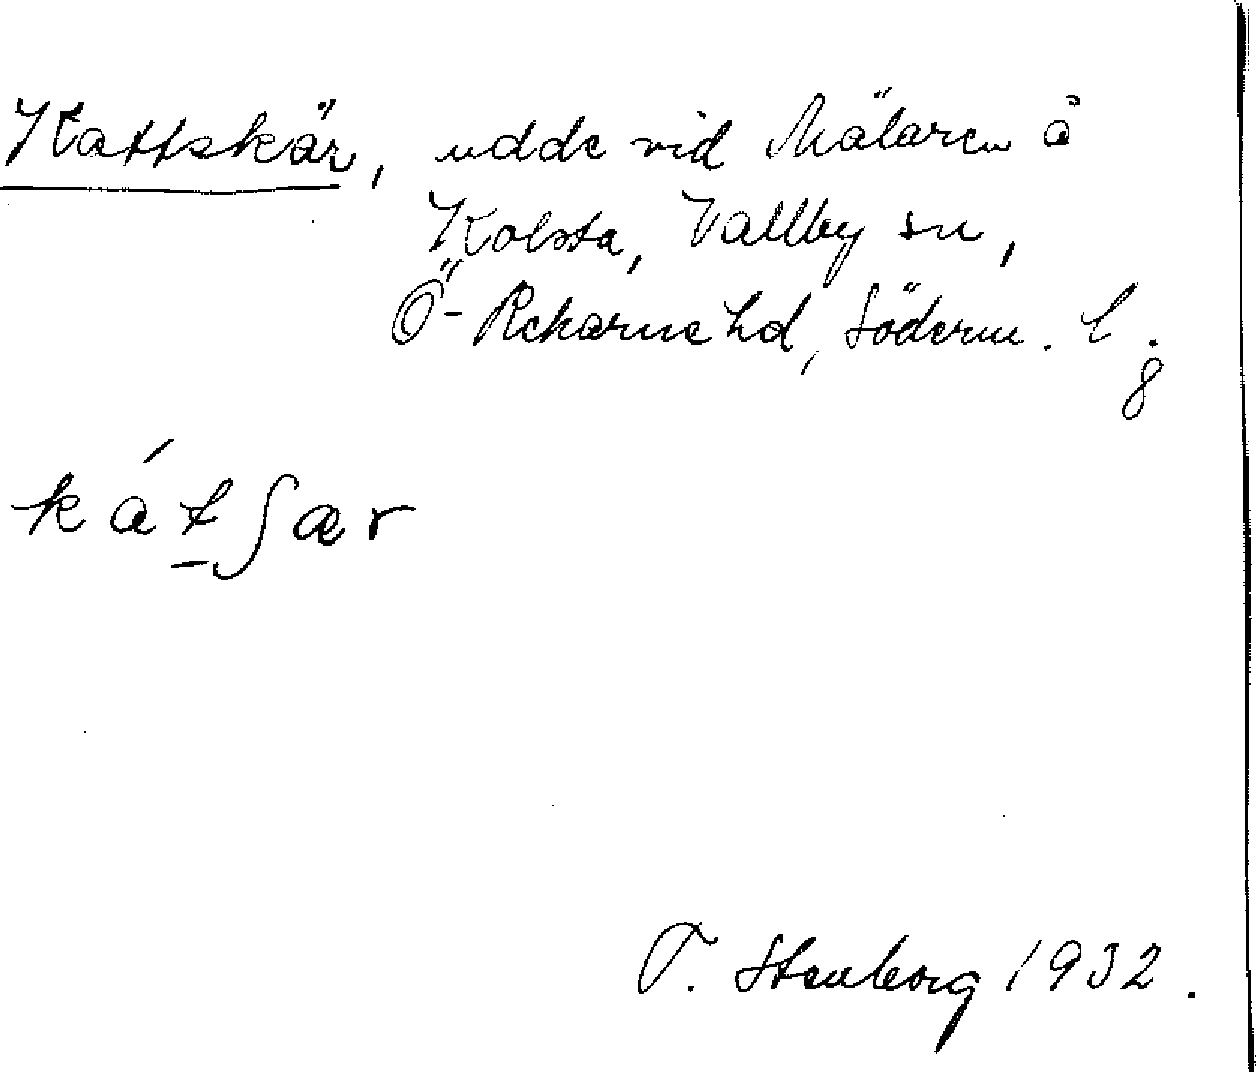 Kattskär, udde vid Mälaren å
Kolsta, Vallby sn,
Ö-Rekarne hd, Söderm. l.
8
kátʃær
T. Stenborg 1932.